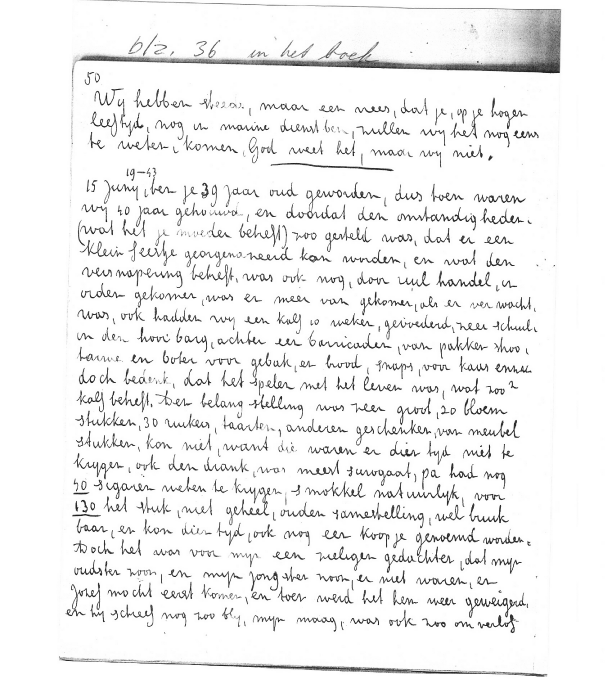 blz. 36 in het boek
50
Wij hebben steeds, maar een vrees, dat je, op je hogen
leeftijd, nog in marine dienst ben, zullen wij het nog eens
te weten, komen, God weet het, maar wij niet.
19-43
15 Juny, ben je 39 jaar oud geworden, dus toen waren
wij 40 jaar gehouwd, en doordat den omstandigheden.
(wat het je moeder beheft) zoo gesteld was, dat er een
klein feestje georganiseerd kan worden, en wat den
versnapering beheft, was ook nog, door ruil handel, in
orden gekomen, was er meer van gekomen, als er verwacht,
was, ook hadden wij een kalf 10 weken, gevoederd, zeer schuil.
in den hooi barg, achter een barricaden, van pakken stroo,
tarwe en boter voor gebak, en brood, snaps, voor kaus
doch bedenk, dat het spelen met het leven was, wat zoo'n
kalf beheft. Den belang stelling was zeer groot, 20 bloem
stukken, 30 ruikers, taarten, anderen geschenken, van meubel
stukken, kon niet, want die waren er dien tyd niet te
krygen, ook den drank, was meest surogaat, pa had nog
40 sigaren weten te krygen, smokkel natuurlyk, voor
130 het stuk, niet geheel, ouden samestelling, wel bruik
baar, en kon dien tyd, ook nog een koopje genoemd worden.
Doch het was voor myn een zieligen gedachten, dat myn
oudster zoon, en myn jongster zoon, er niet waren, en
Jozef mocht eerst komen, en toen werd het hem weer geweigerd,
en hy schreef nog zoo bly, myn maag, was ook zoo om verlof